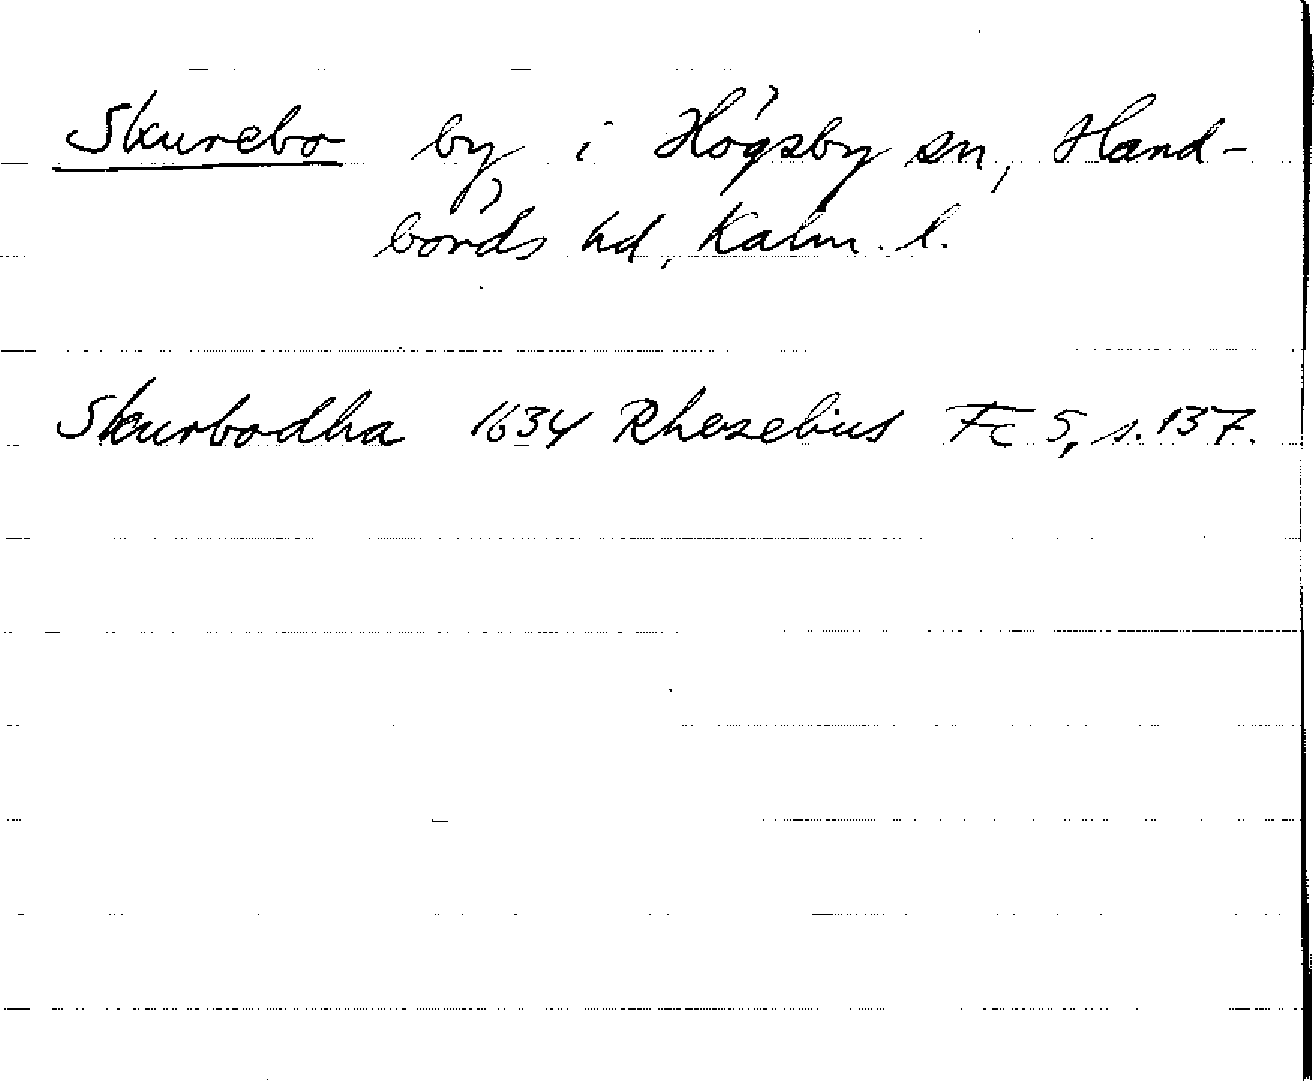 Skurebo by i Högsby sn, Hand-
börds hd, Kalm. l.
Skurbodha 1634 Rhezelius Fc 5, s. 137.